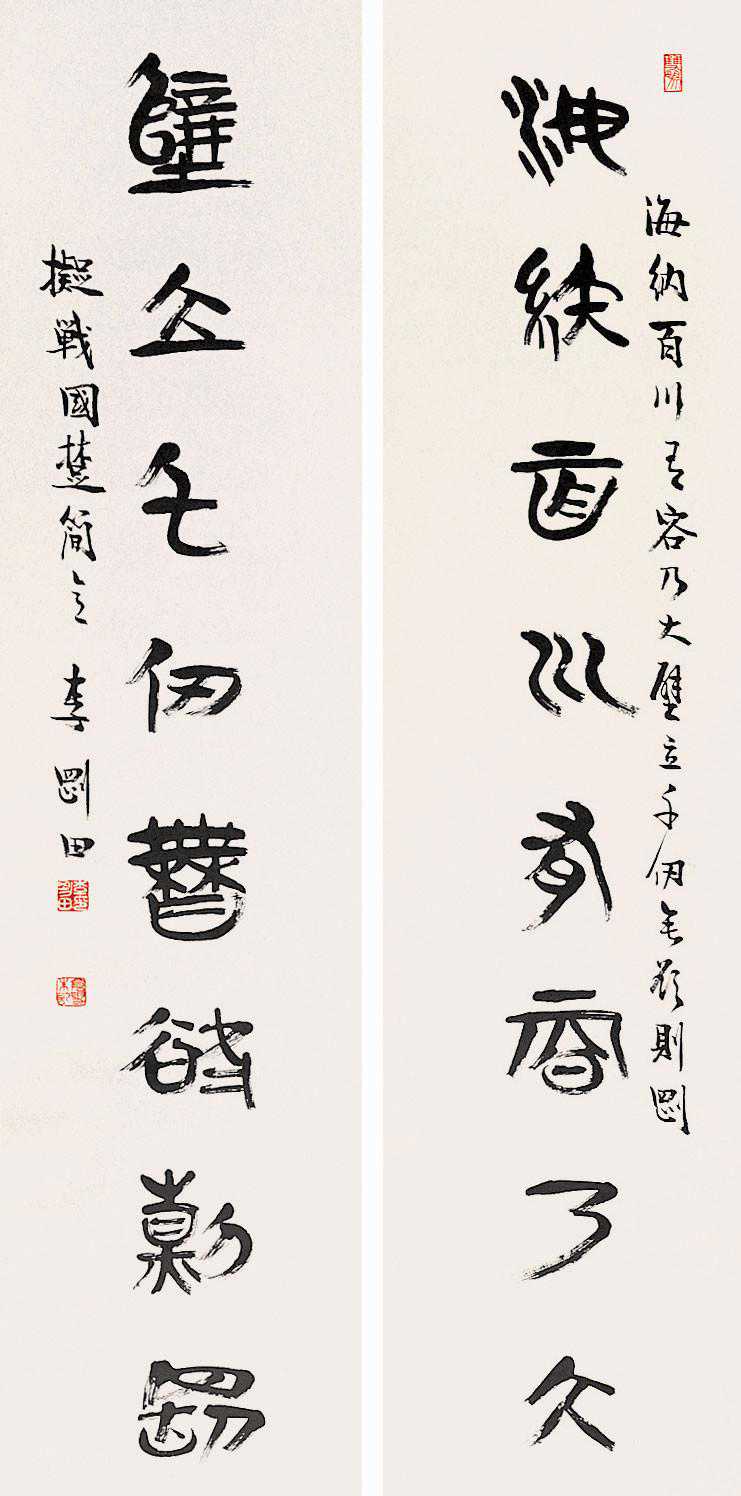 海納百川有容乃大
海納百川有容乃大壁立千仞無欲則剛
壁立千仞無欲則剛
擬戰國楚簡意 李剛田